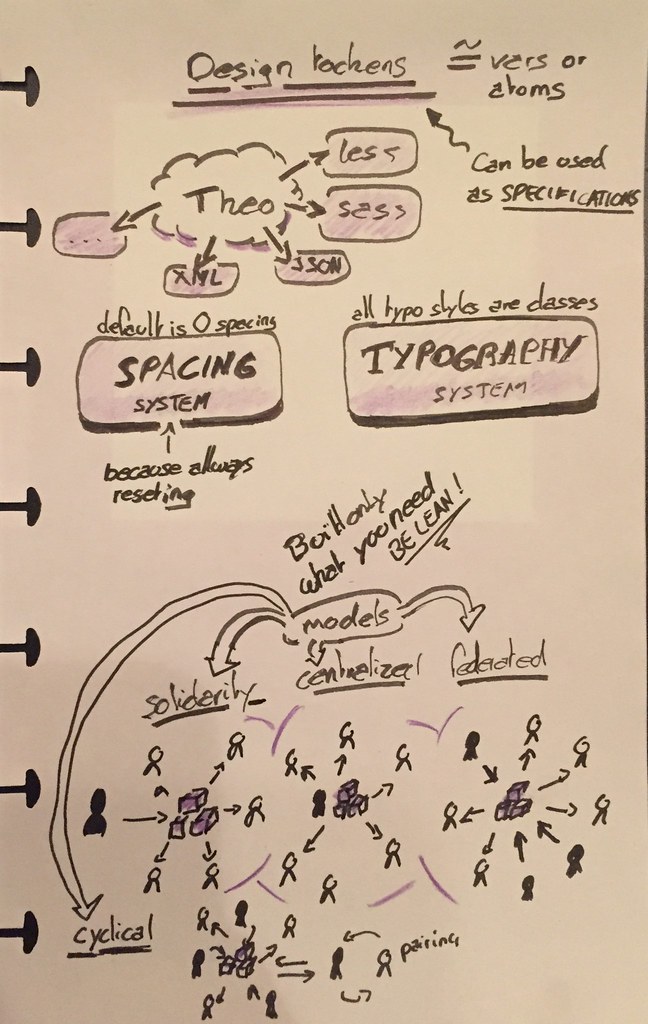 Design tockens
≅ vars or
atoms
Can be used
as SPECIFICATIONS
Theo
less
sass
...
XML
JSON
default is 0 spacing
SPACING
SYSTEM
because allways
reseting
all typo styles are classes
TYPOGRAPHY
SYSTEM
Built only
what you need
BE LEAN!
models
soliderity
centralized
federated
cyclical
pairing